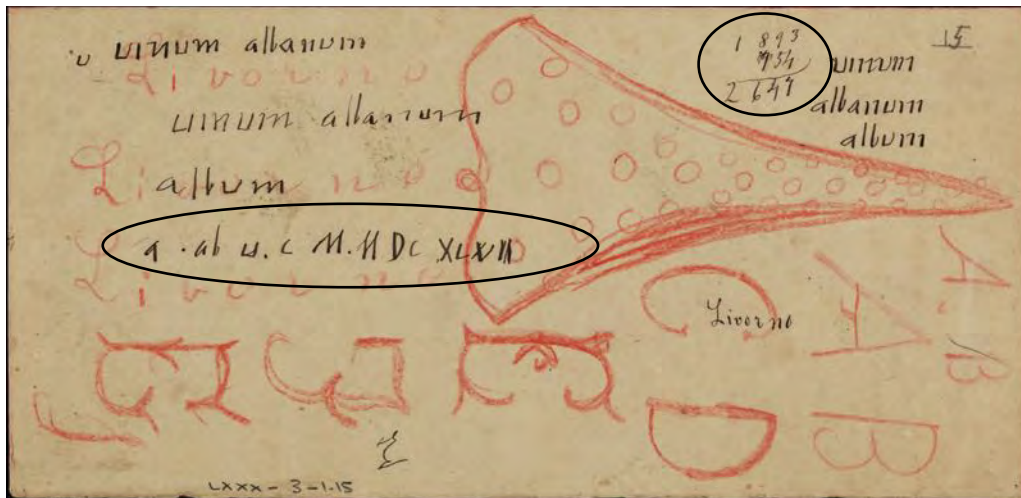 u uinum albanum
Livorno
uinum albanum
Livorno
album
a . ab u. c M.M DC XLXVII
Livorno
1 893
754
2 647
15
uinum
albanum
album
C
A
A.B
Livorno
D
B
LXXX-3-1-15